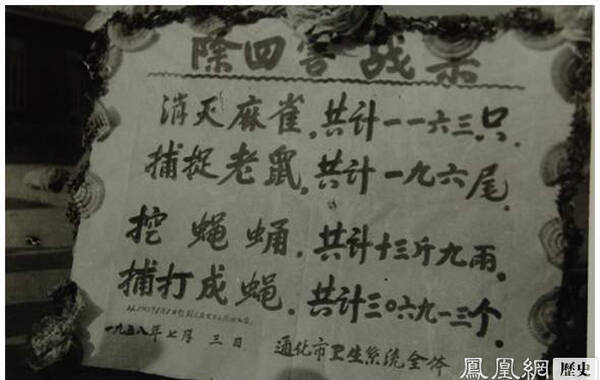 除四害战果
消灭麻雀,共计一一六三只.
捕捉老鼠,共计一九六尾.
挖蝇蛹.共计十三斤九两.
捕打成蝇.共计三〇六九一三个.
一九五八年七月三日.
通化市卫生系统全体
鳳凰網 歷史